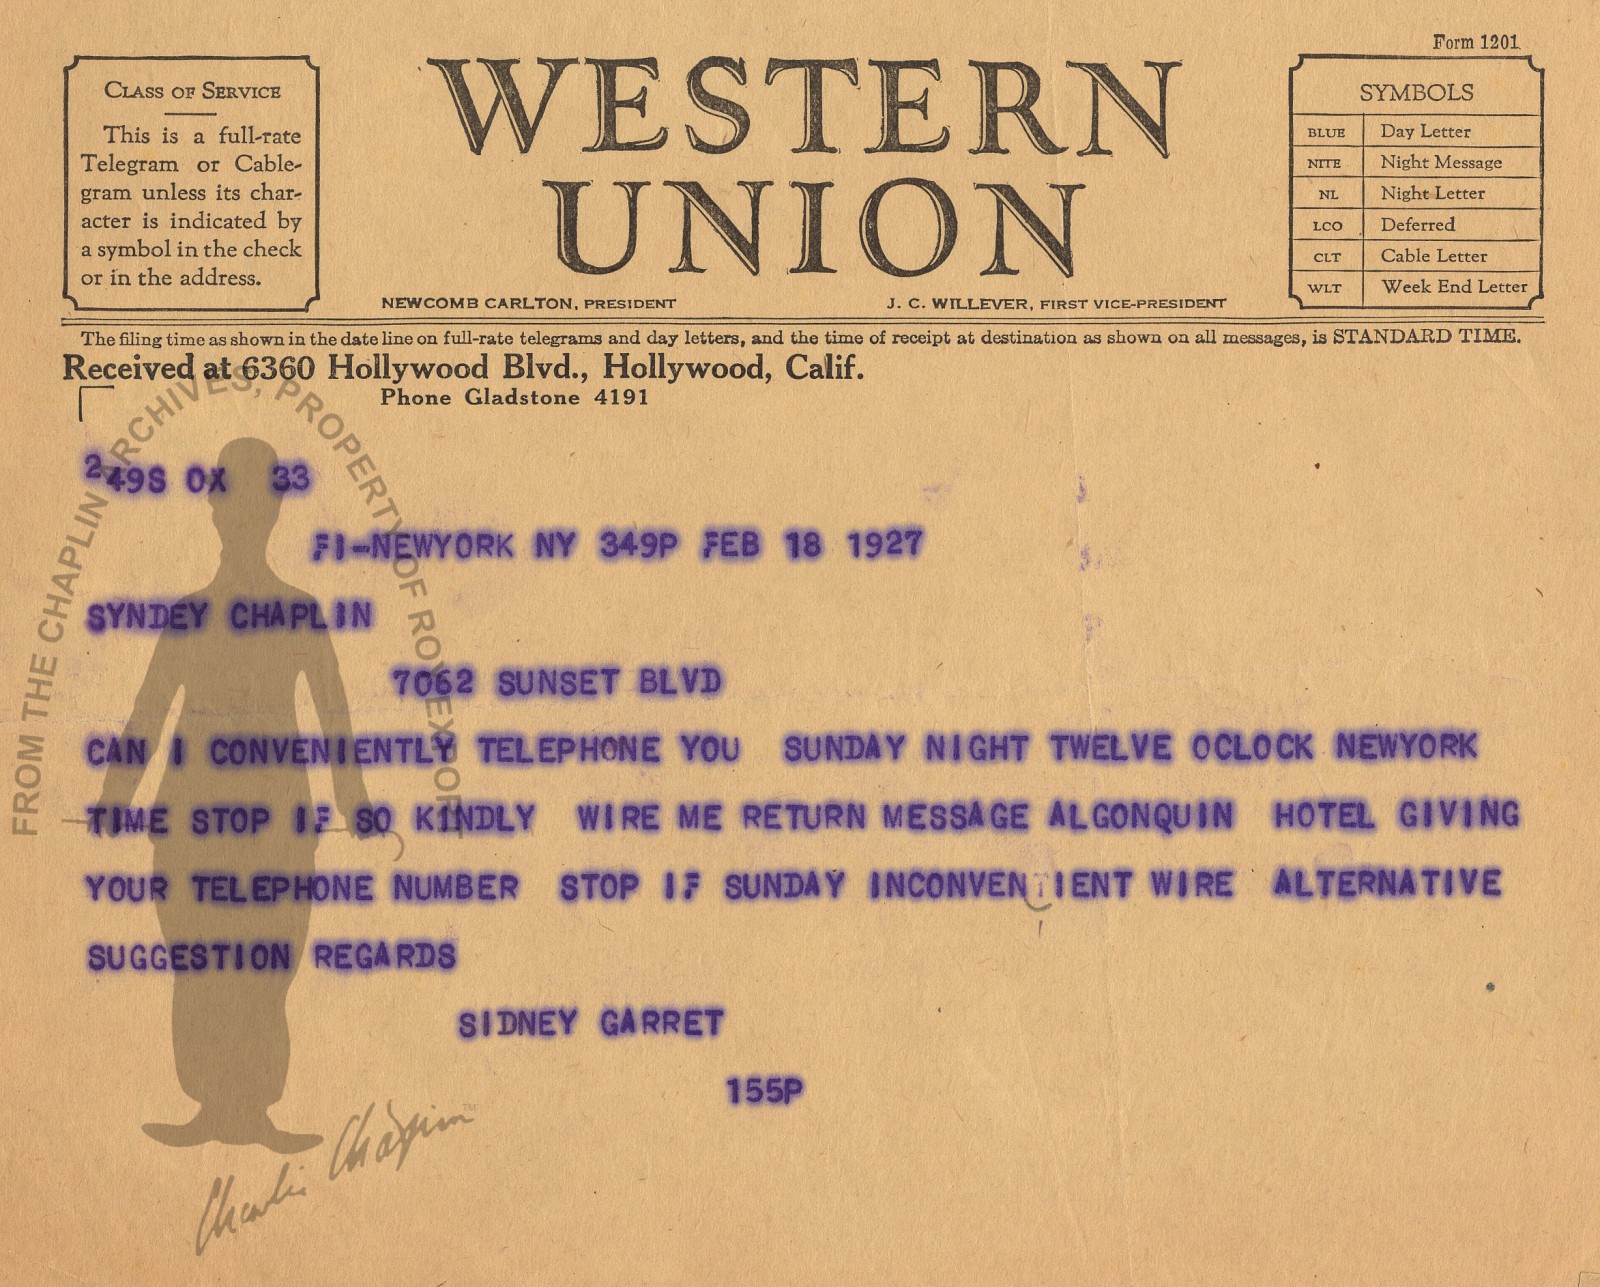 Form 1201
CLASS OF SERVICE
This is a full-rate
Telegram or Cable-
gram unless its char-
acter is indicated by
a symbol in the check
or in the address.
WESTERN
UNION
NEWCOMB CARLTON, PRESIDENT
J. C. WILLEVER, FIRST VICE-PRESIDENT
SYMBOLS
BLUE Day Letter
NITE Night Message
NL Night Letter
LCO Deferred
CLT Cable Letter
WLT Week End Letter
The filing time as shown in the date line on full-rate telegrams and day letters, and the time of receipt at destination as shown on all messages, is STANDARD TIME.
Received at 6360 Hollywood Blvd., Hollywood, Calif.
Phone Gladstone 4191
249S OX 33
FI-NEWYORK NY 349P FEB 18 1927
SYNDEY CHAPLIN
7062 SUNSET BLVD
CAN I CONVENIENTLY TELEPHONE YOU SUNDAY NIGHT TWELVE OCLOCK NEWYORK
TIME STOP IF SO KINDLY WIRE ME RETURN MESSAGE ALGONQUIN HOTEL GIVING
YOUR TELEPHONE NUMBER STOP IF SUNDAY INCONVENIENT WIRE ALTERNATIVE
SUGGESTION REGARDS
SIDNEY GARRET
155P
FROM THE CHAPLIN ARCHIVES, PROPERTY OF ROY EXPORT
Charlie Chaplin ™